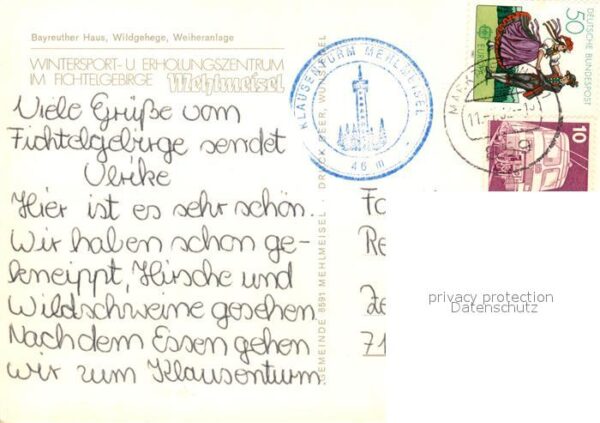 Bayreuther Haus, Wildgehege, Weiheranlage
WINTERSPORT- U ERHOLUNGSZENTRUM
IM FICHTELGEBIRGE Mehlmeisel
Viele Grüße vom
Fichtelgebirge sendet
Ulrike
Hier ist es sehr schön.
Wir haben schon ge-
kneippt, Hirsche und
Wildschweine gesehen
Nachdem Essen gehen
wir zum Klausenturm
GEMEINDE 8591 MEHLMEISEL · DRUCK BEER, WUNSIEDEL
KLAUSENTURM MEHLMEISEL
46 m
50
DEUTSCHE BUNDESPOST
EUROPA
10
Re
71
privacy protection
Datenschutz